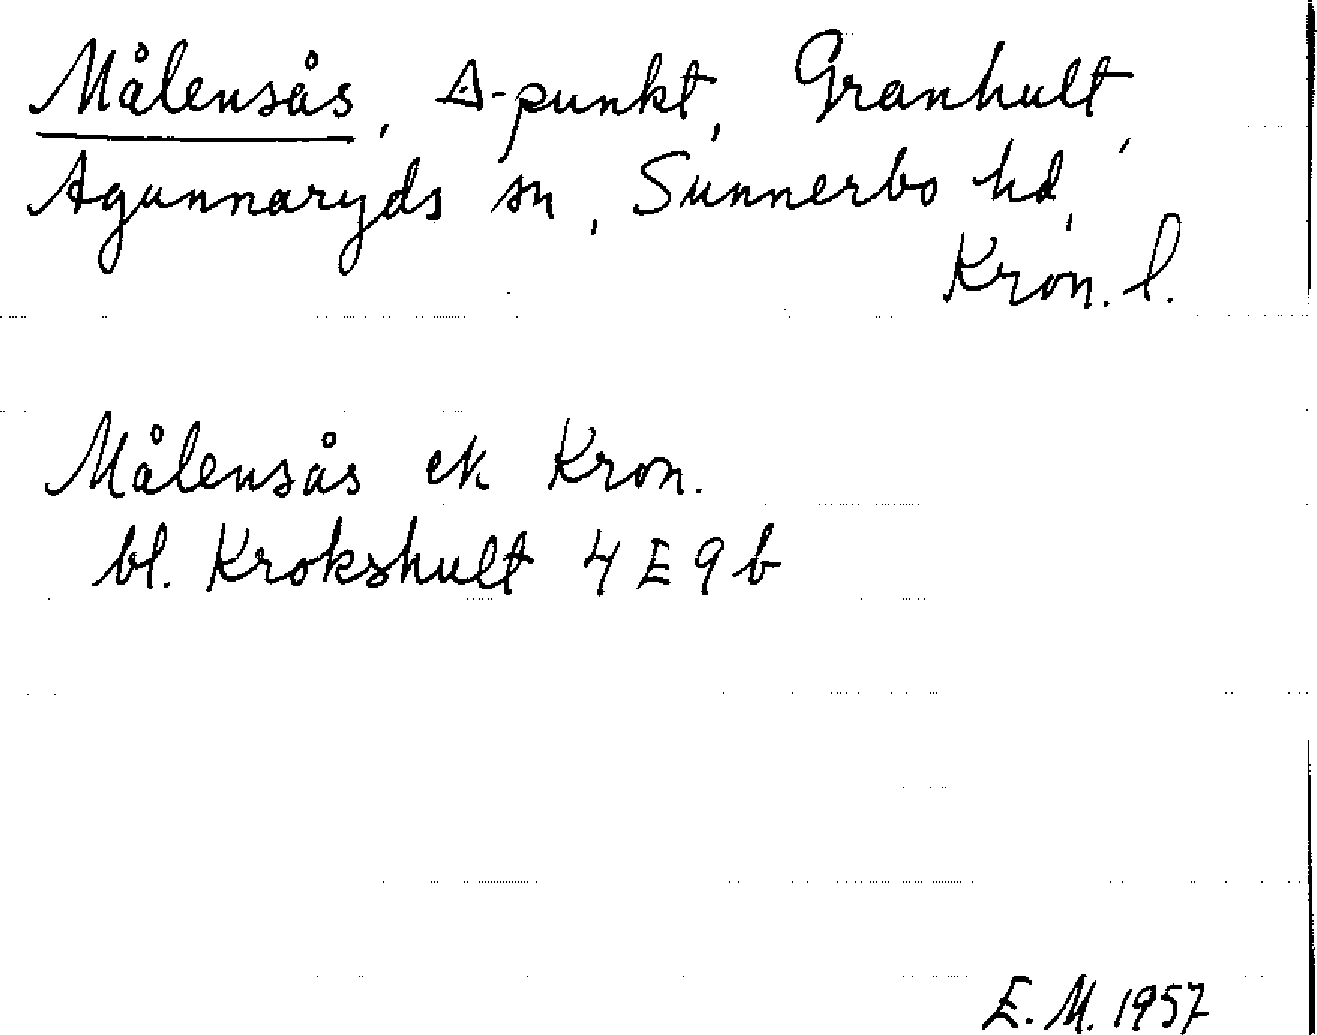 Målensås, △-punkt, Granhult,
Agunnaryds sn, Sunnerbo hd,
Kron. l.
Målensås ek Kron.
bl. Krokshult 4E9b
E.M. 1957